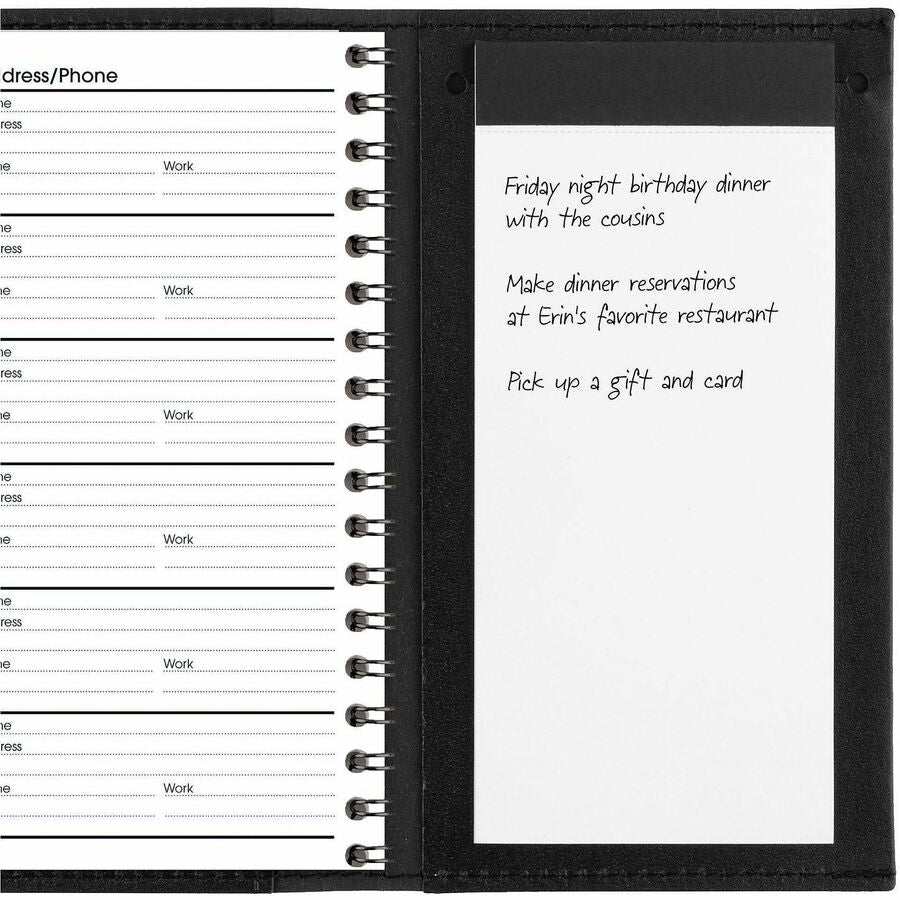 dress/Phone
ne
ress
ne Work
ne
ress
ne Work
ne
ress
ne Work
ne
ress
ne Work
ne
ress
ne Work
ne
ress
ne Work
Friday night birthday dinner
with the cousins
Make dinner reservations
at Erin's favorite restaurant
Pick up a gift and card